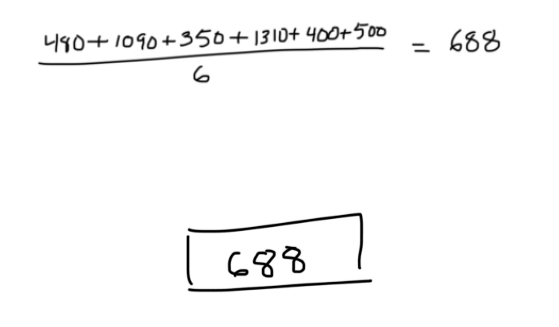 480+1090+350+1310+400+500 = 688
6
688